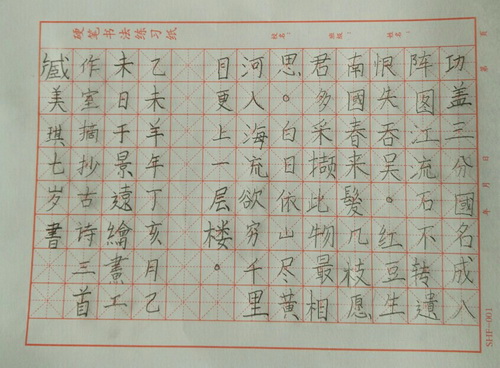 硬笔书法练习纸
校名：
班级：
姓名：
第 页
年 月 日
功盖三分國名成八
阵图江流石不转遗
恨失吞吴。红豆生
南國春来髮几枝愿
君多采撷此物最相
思。白日依山尽黄
河入海流欲穷千里
目更上一层楼。
乙未羊年丁亥月乙
未日于景遠繪畫工
作室摘抄古诗三首
臧美琪七岁書
SHF-001